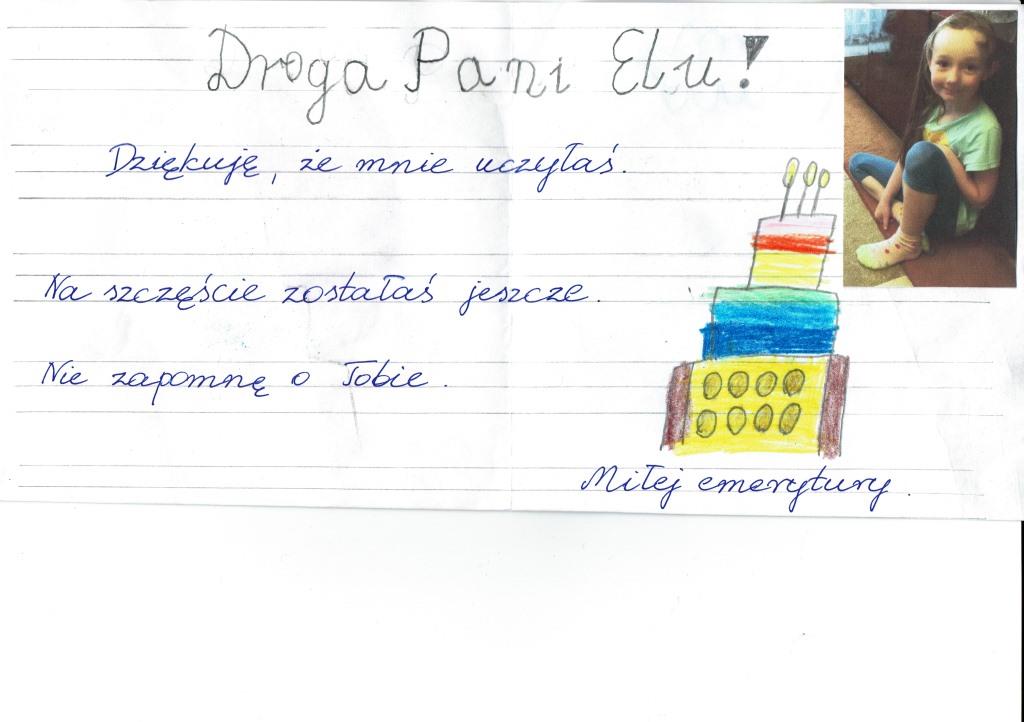 Droga Pani Elu!
Dziękuję, że mnie uczyłaś.
Na szczęście zostałaś jeszcze.
Nie zapomnę o Tobie.
Miłej emerytury.